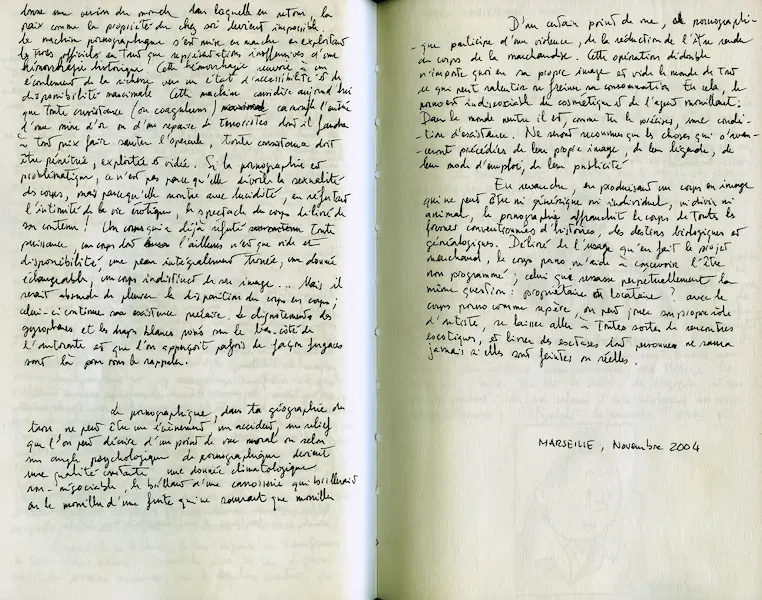 donne une version du monde dans laquelle en retour la
paix comme la propriété du chez soi devient impossible.
La machine pornographique s'est mise en marche en exploitant
en tant que représentation inoffensives d'une
hémorragie historique. Cette hémorragie renvoie à un
écoulement de la richesse vers un état d'accessibilité et de
disponibilité maximale. Cette machine considère aujourd'hui
que toute consistance (ou coagulum) l'entrée
d'une mine d'or ou d'un repaire de terroristes dont il faudra
à tout prix faire sauter l'opercule, toute consistance doit
être pénétrée, exploitée et vidée. Si la pornographie est
problématique, ce n'est pas parce qu'elle dévoile la sexualité
des corps, mais parce qu'elle montre avec lucidité, en réfutant
l'intimité de la vie érotique, le spectacle du corps délivré de
son contenu! Un corps qui a déjà réfuté toute
puissance, un corps dont l'ailleurs n'est que vide et
disponibilité, une peau intégralement trouée, une donnée
échangeable, un corps indistinct de son image... Mais il
serait absurde de pleurer la disparition du corps en corps;
celui-ci continue son existence précaire. Le clignotement des
gyrophares et les draps blancs posés sur le bas-côté de
l'autoroute et que l'on aperçoit parfois de façon fugaces
sont là pour nous le rappeler.
Le pornographique, dans ta géographie du
trou ne peut être un évènement, un accident, un relief
que l'on peut décrire d'un point de vue moral ou selon
un angle psychologique. Le pornographique devient
une qualité constante une donnée climatologique
non-négociable, le brillant d'une carrosserie qui brillerait
ou le mouillé d'une fente qui ne saurait que mouiller
D'un certain point de vue, le pornographi-
-que participe d'une violence, de la réduction de l'Être rendu
au corps de la marchandise. Cette opération
n'importe quoi en sa propre image et vide le monde de tout
ce qui peut ralentir ou freiner sa consommation. En cela, le
porno est indissociable du cosmétique et de l'agent mouillant:
Dans le monde entier il est, comme tu le précises, une condi-
-tion d'existence. Ne seront reconnues que les choses qui s'avan-
-ceront précédées de leur propre image, de leur légende, de
leur mode d'emploi, de leur publicité
En revanche, en produisant un corps en image
qui ne peut être ni générique ni individuel, ni divin ni
animal, la pornographie affranchit le corps de toutes les
formes conventionnées d'histoires, des destins biologiques et
généalogiques. Délivré de l'usage qu'en fait le projet
marchand, le corps porno m'aide à concevoir l'être
non programmé; celui que ressasse perpétuellement la
même question: propriétaire ou locataire? avec le
corps porno comme repère, on peut jouer
d'artiste, se laisser aller à toutes sortes de rencontres
exotiques, et livrer des extases dont personne ne saura
jamais si elles sont feintes ou réelles.
MARSEILLE, Novembre 2004